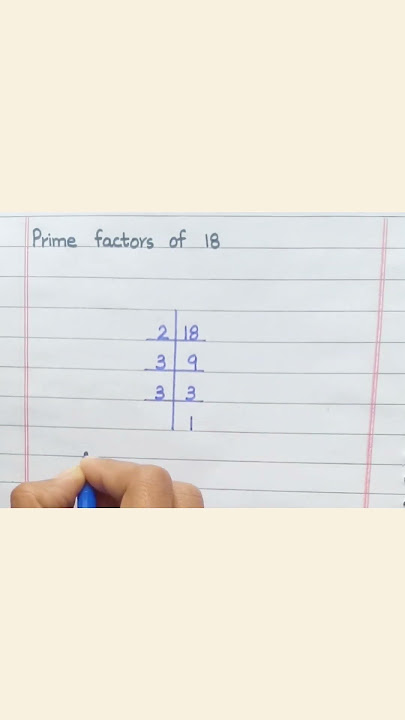 Prime factors of 18
2 18
3 9
3 3
1